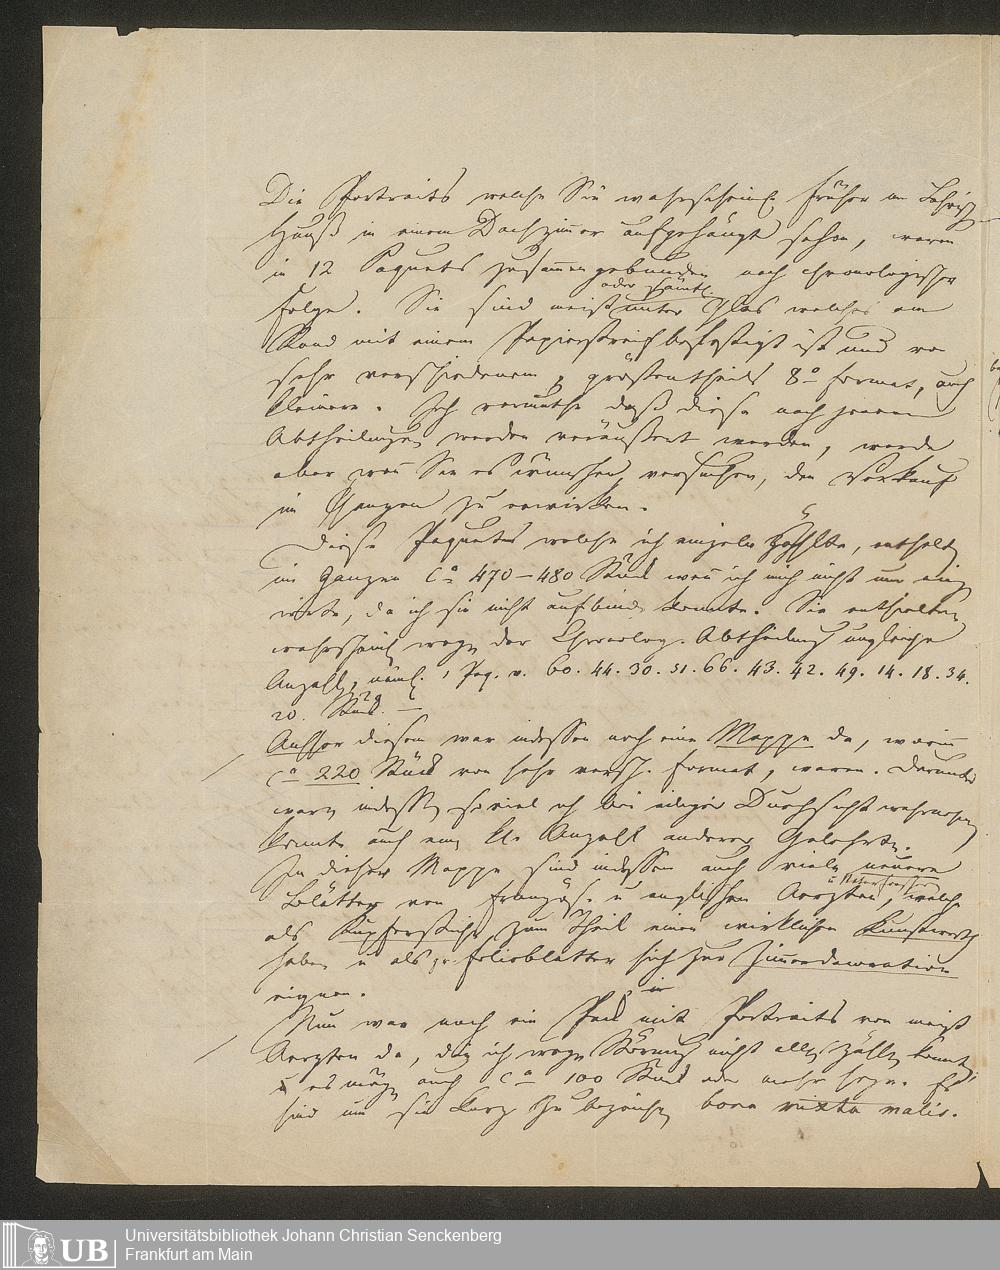 Die Portraits welche Sie wahrscheinl. früher im
Hauß in einem Dachzimmer aufgehängt sahen, waren
in 12 Paquets zusammengebunden nach chronologischer
Folge. Sie sind meist oder sämtl. unter Glas welches am
Rand mit einem Papierstreif befestigt ist und von
sehr verschiedenem, größtentheils 8º Format, auch
kleinere. Ich vermuthe daß diese nach jenen
Abtheilungen werden veräußert werden, werde
aber wenn Sie es wünschen, versuchen, den Verkauf
im Ganzen zu erwirken.
Diese Paquets welche ich einzeln zählte, enthalten
im Ganzen Cª 470–480 Stück wenn ich mich nicht um einige
irrte, da ich sie nicht aufbinden konnte. Sie enthielten
wahrscheinl. wegen der Chronolog. Abtheilung ungleiche
Anzahl, näml. 1 Paq. v. 60. 44. 30. 51. 66. 43. 42. 49. 14. 18. 34.
20. Stück.
Außer diesen war indessen noch eine Mappe da, worin
Cª 220 Stück von sehr versch. Format, waren. Darunter
waren indessen soviel ich bei eiliger Durchsicht wahrnehmen
konnte auch eine kl. Anzahl anderer Gelehrten.
In dieser Mappe sind indessen auch viele neuere
Blätter von französ. u englischen Aerzten u Naturforschern, welche
als Kupferstiche, zum Theil einen wirklichen Kunstwerth
haben u als gr. Folioblätter sich zur Zimmerdecoration
eignen.
Nun war noch ein Pack mit Portraits von meist
Aerzten da, die ich wegen Störung nicht alle zählen konnte,
es mögen auch Cª 100 Stück oder mehr seyn. Es
sind um sie kurz zu bezeichnen bona mixta malis.
Universitätsbibliothek Johann Christian Senckenberg
Frankfurt am Main
UB